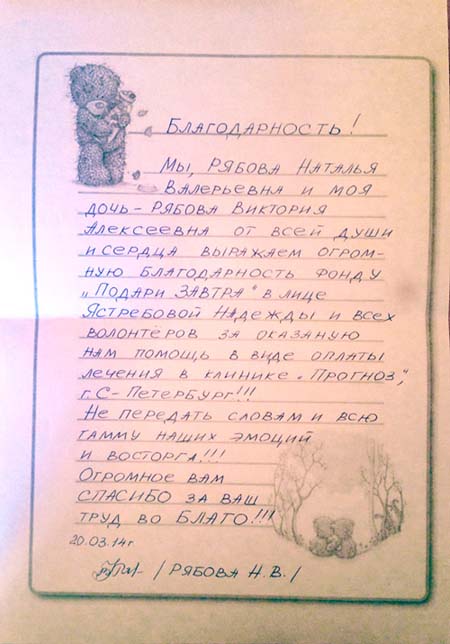 БЛАГОДАРНОСТЬ!
МЫ, РЯБОВА НАТАЛЬЯ
ВАЛЕРЬЕВНА И МОЯ
ДОЧЬ – РЯБОВА ВИКТОРИЯ
АЛЕКСЕЕВНА ОТ ВСЕЙ ДУШИ
И СЕРДЦА ВЫРАЖАЕМ ОГРОМ-
НУЮ БЛАГОДАРНОСТЬ ФОНДУ
„ПОДАРИ ЗАВТРА" В ЛИЦЕ
ЯСТРЕБОВОЙ НАДЕЖДЫ И ВСЕХ
ВОЛОНТЁРОВ ЗА ОКАЗАНУЮ
НАМ ПОМОЩЬ В ВИДЕ ОПЛАТЫ
ЛЕЧЕНИЯ В КЛИНИКЕ „ПРОГНОЗ",
г. С-ПЕТЕРБУРГ!!!
НЕ ПЕРЕДАТЬ СЛОВАМИ ВСЮ
ГАММУ НАШИХ ЭМОЦИЙ
И ВОСТОРГА!!!
ОГРОМНОЕ ВАМ
СПАСИБО ЗА ВАШ
ТРУД ВО БЛАГО!!!
20.03.14г
/ РЯБОВА Н.В. /